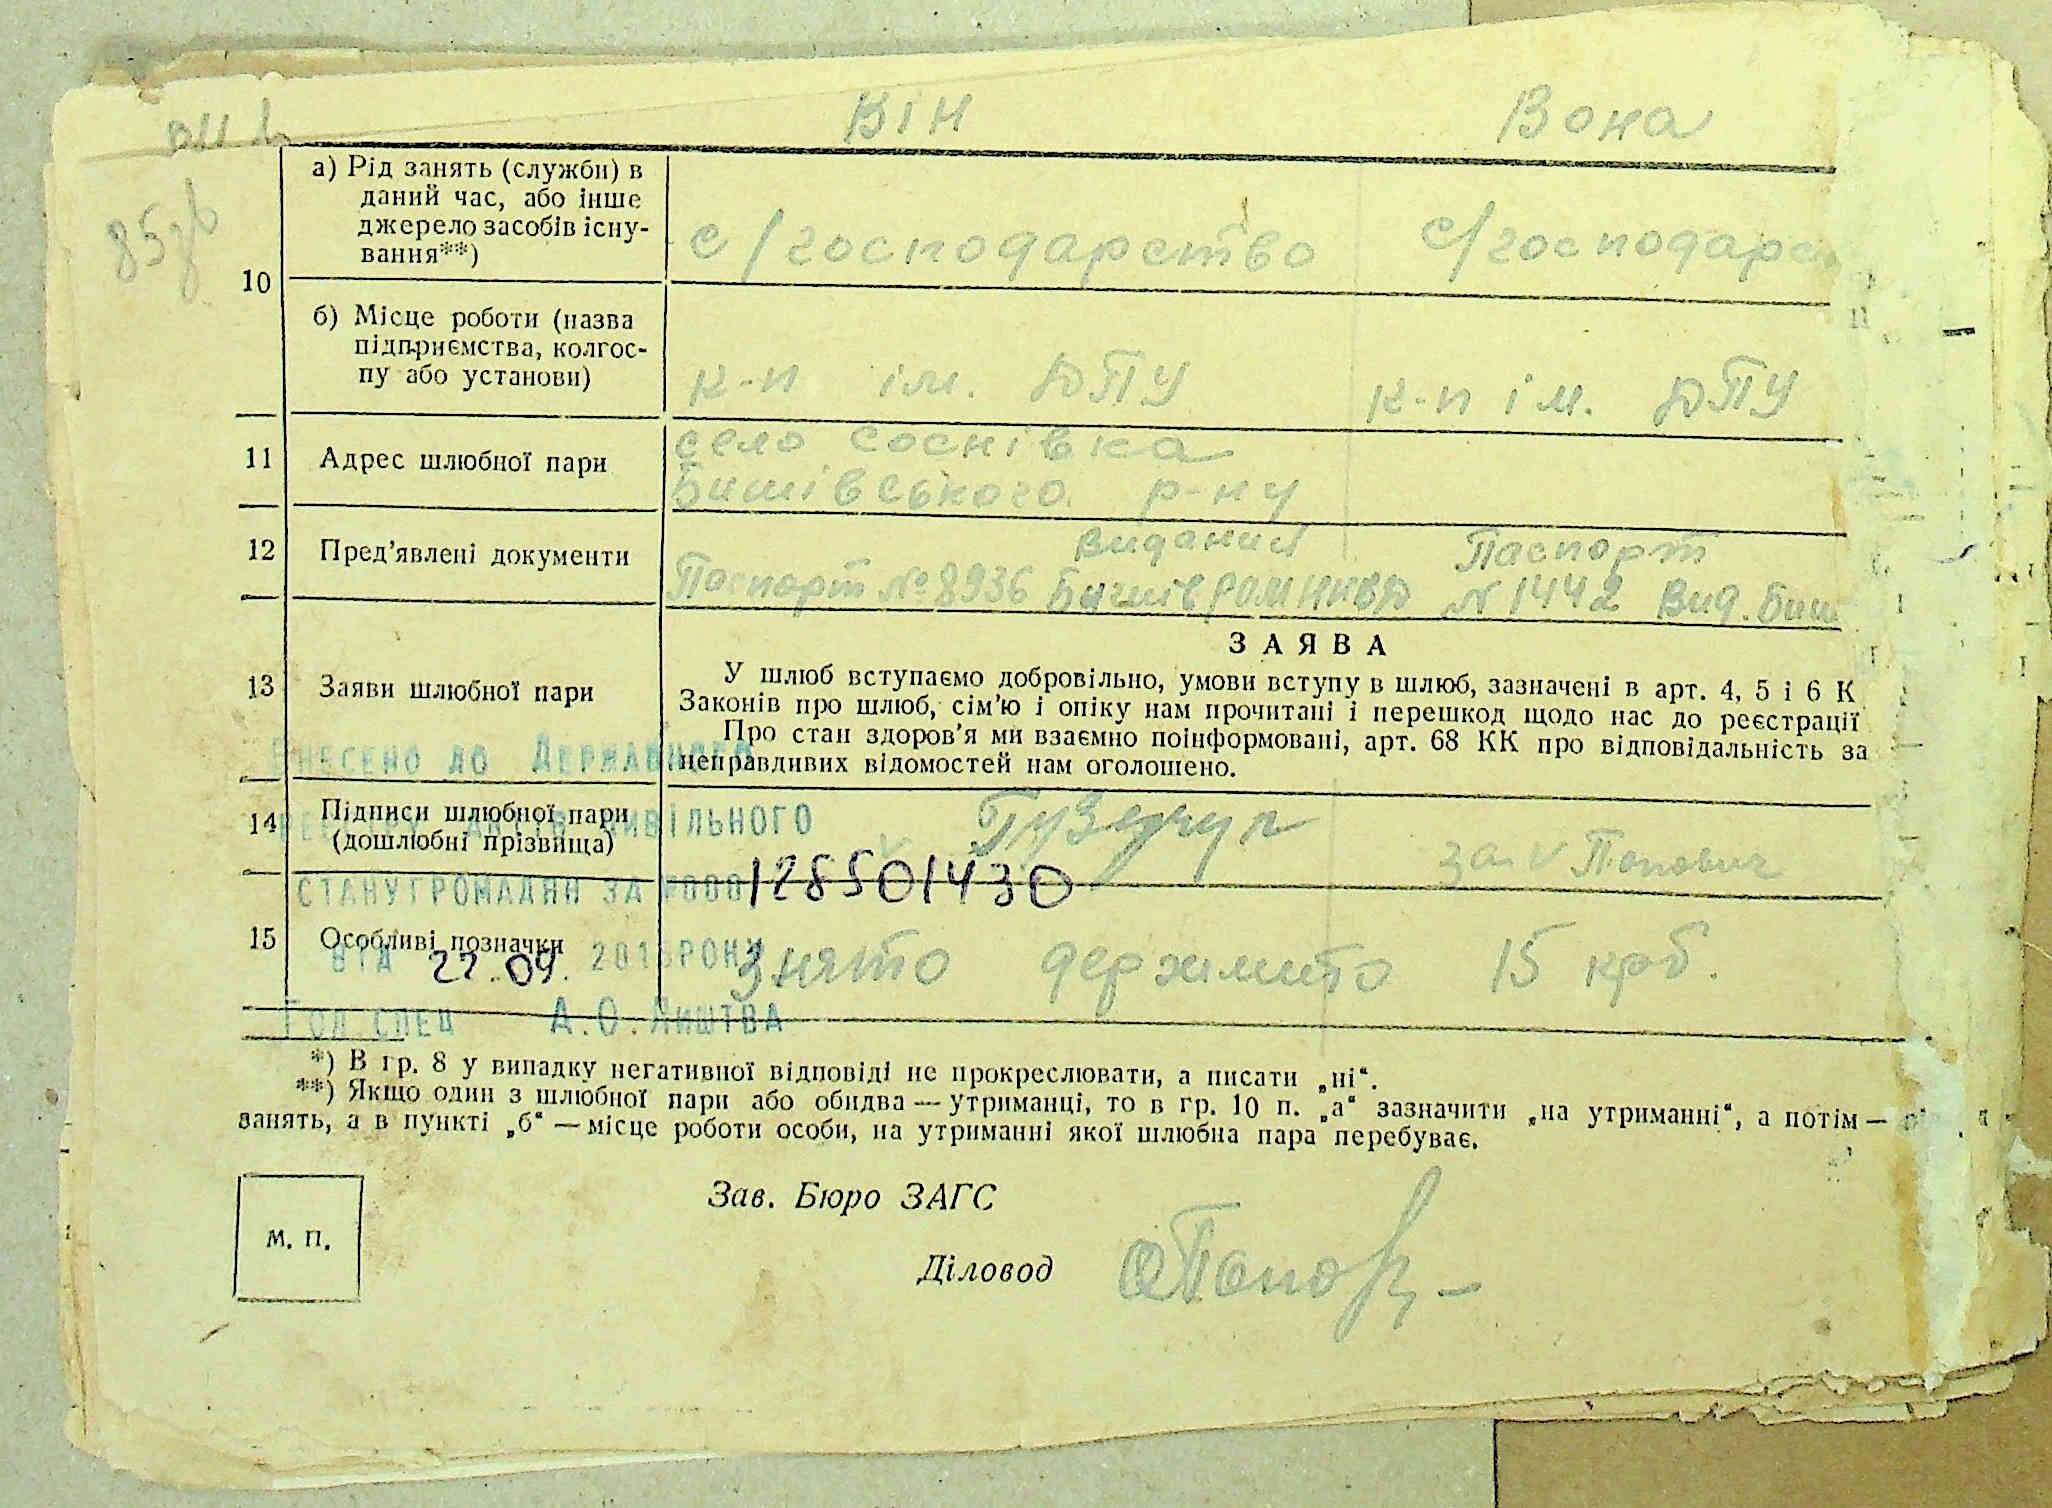 Він Вона
85зв
10
а) Рід занять (служби) в
даний час, або інше
джерело засобів існу-
вання**)
с/господарство с/господарс
б) Місце роботи (назва
підприємства, колгос-
пу або установи)
к-п ім. ДПУ к-п ім. ДПУ
11 Адрес шлюбної пари
село Соснівка
Бишівського р-ну
12 Пред’явлені документи
виданий Паспорт
Паспорт № 8936 Бишів N 1442 Вид. Биш
13 Заяви шлюбної пари
ЗАЯВА
У шлюб вступаємо добровільно, умови вступу в шлюб, зазначені в арт. 4, 5 і 6 К
Законів про шлюб, сім’ю і опіку нам прочитані і перешкод щодо нас до реєстрації
Про стан здоров’я ми взаємно поінформовані, арт. 68 КК про відповідальність за
неправдивих відомостей нам оголошено.
Внесено до Державного
реєстру актів цивільного
стану громадян за №000128501430
від 22.09. 2015 року
Гол. спец А.О. Лиштва
14 Підписи шлюбної пари
(дошлюбні прізвища)
за Попович
15 Особливі позначки
Знято держмито 15 крб.
*) В гр. 8 у випадку негативної відповіді не прокреслювати, а писати „ні“.
**) Якщо один з шлюбної пари або обидва — утриманці, то в гр. 10 п. „а“ зазначити „на утриманні“, а потім —
занять, а в пункті „б“ — місце роботи особи, на утриманні якої шлюбна пара перебуває.
М. П.
Зав. Бюро ЗАГС
Діловод